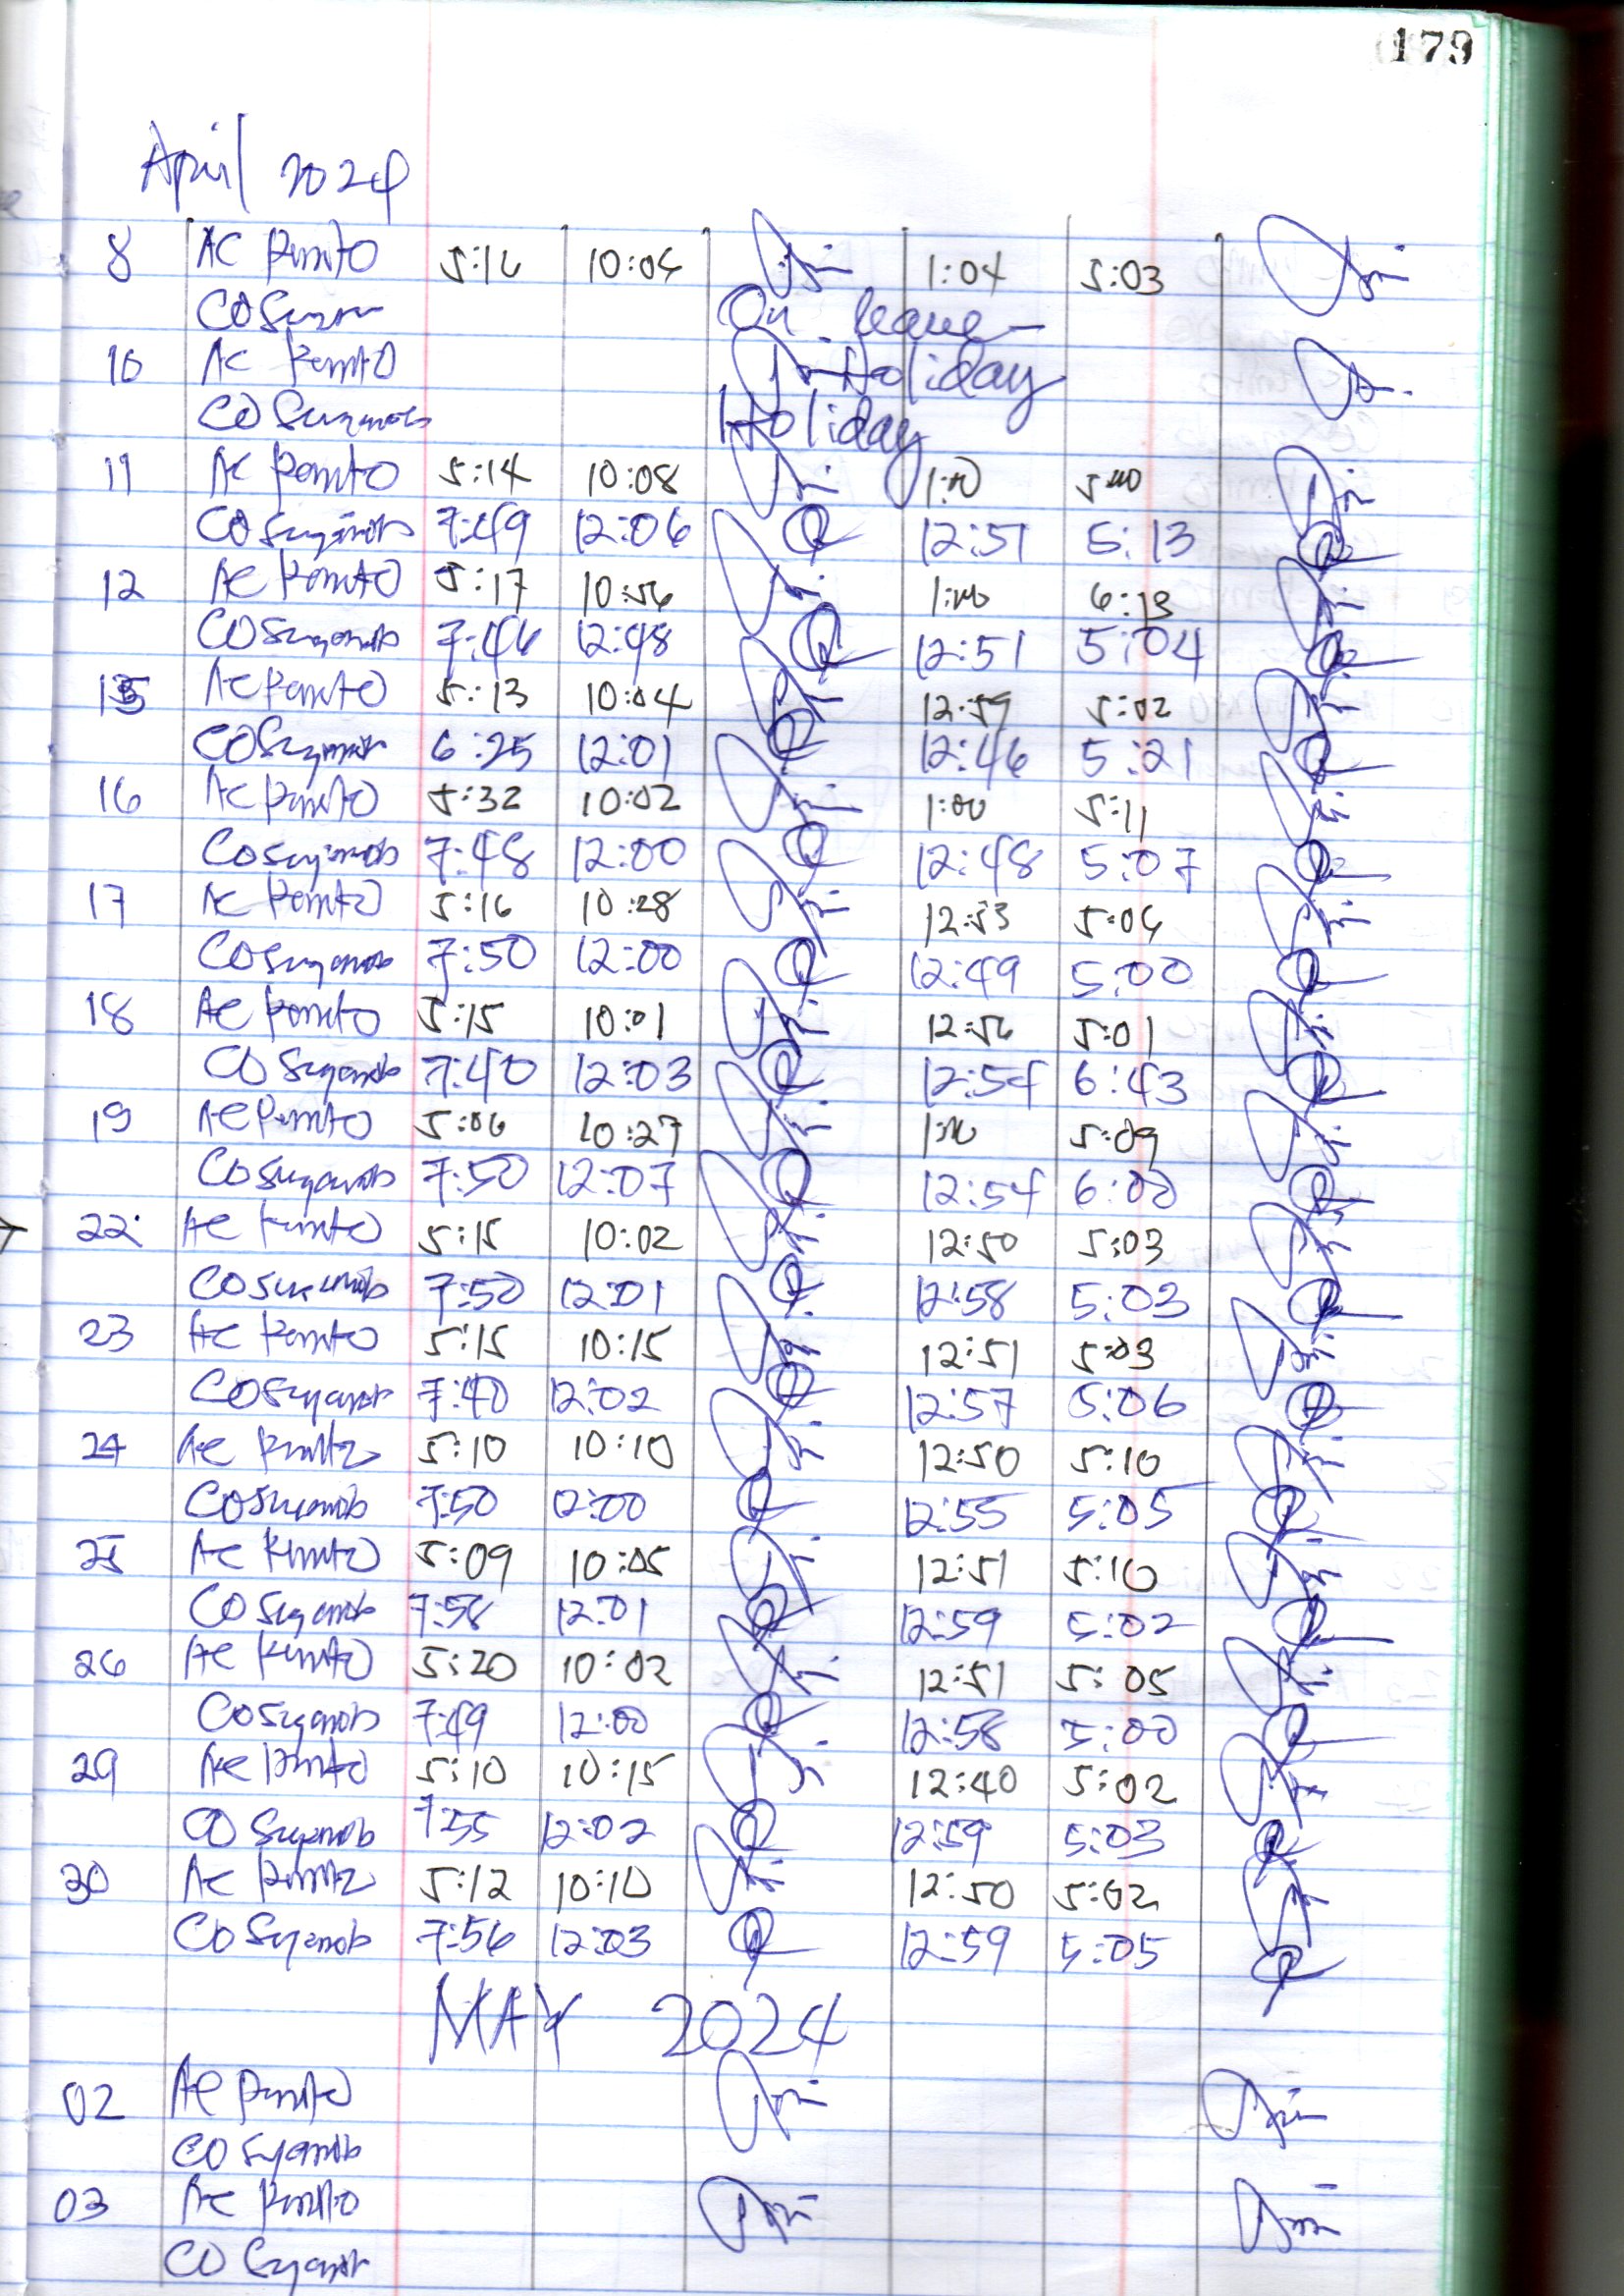 179
April 2024
8 AC Pinito 5:16 10:04 1:04 5:03
CO On leave
10 AC Pinito Holiday
CO Suganob Holiday
11 AC Pinito 5:14 10:08 1:00 5:00
CO Suganob 7:49 12:06 12:51 5:13
12 AC Pinito 5:17 10:56 1:00 6:13
CO Suganob 7:46 12:48 12:51 5:04
15 AC Pinito 5:13 10:04 12:59 5:02
CO Suganob 6:25 12:01 12:46 5:21
16 AC Pinito 5:32 10:02 1:00 5:11
CO Suganob 7:48 12:00 12:48 5:07
17 AC Pinito 5:16 10:28 12:53 5:04
CO Suganob 7:50 12:00 12:49 5:00
18 AC Pinito 5:15 10:01 12:56 5:01
CO Suganob 7:40 12:03 12:54 6:43
19 AC Pinito 5:06 10:27 1:00 5:09
CO Suganob 7:50 12:07 12:54 6:00
22 AC Pinito 5:15 10:02 12:50 5:03
CO Suganob 7:50 12:01 12:58 5:03
23 AC Pinito 5:15 10:15 12:51 5:03
CO Suganob 7:40 12:02 12:57 5:06
24 AC Pinito 5:10 10:10 12:50 5:10
CO Suganob 7:50 12:00 12:55 5:05
25 AC Pinito 5:09 10:05 12:51 5:10
CO Suganob 7:58 12:01 12:59 5:02
26 AC Pinito 5:20 10:02 12:51 5:05
CO Suganob 7:49 12:00 12:58 5:00
29 AC Pinito 5:10 10:15 12:40 5:02
CO Suganob 7:55 12:02 12:59 5:03
30 AC Pinito 5:12 10:10 12:50 5:02
CO Suganob 7:56 12:03 12:59 5:05
MAY 2024
02 AC Pinito
CO Suganob
03 AC Pinito
CO Suganob